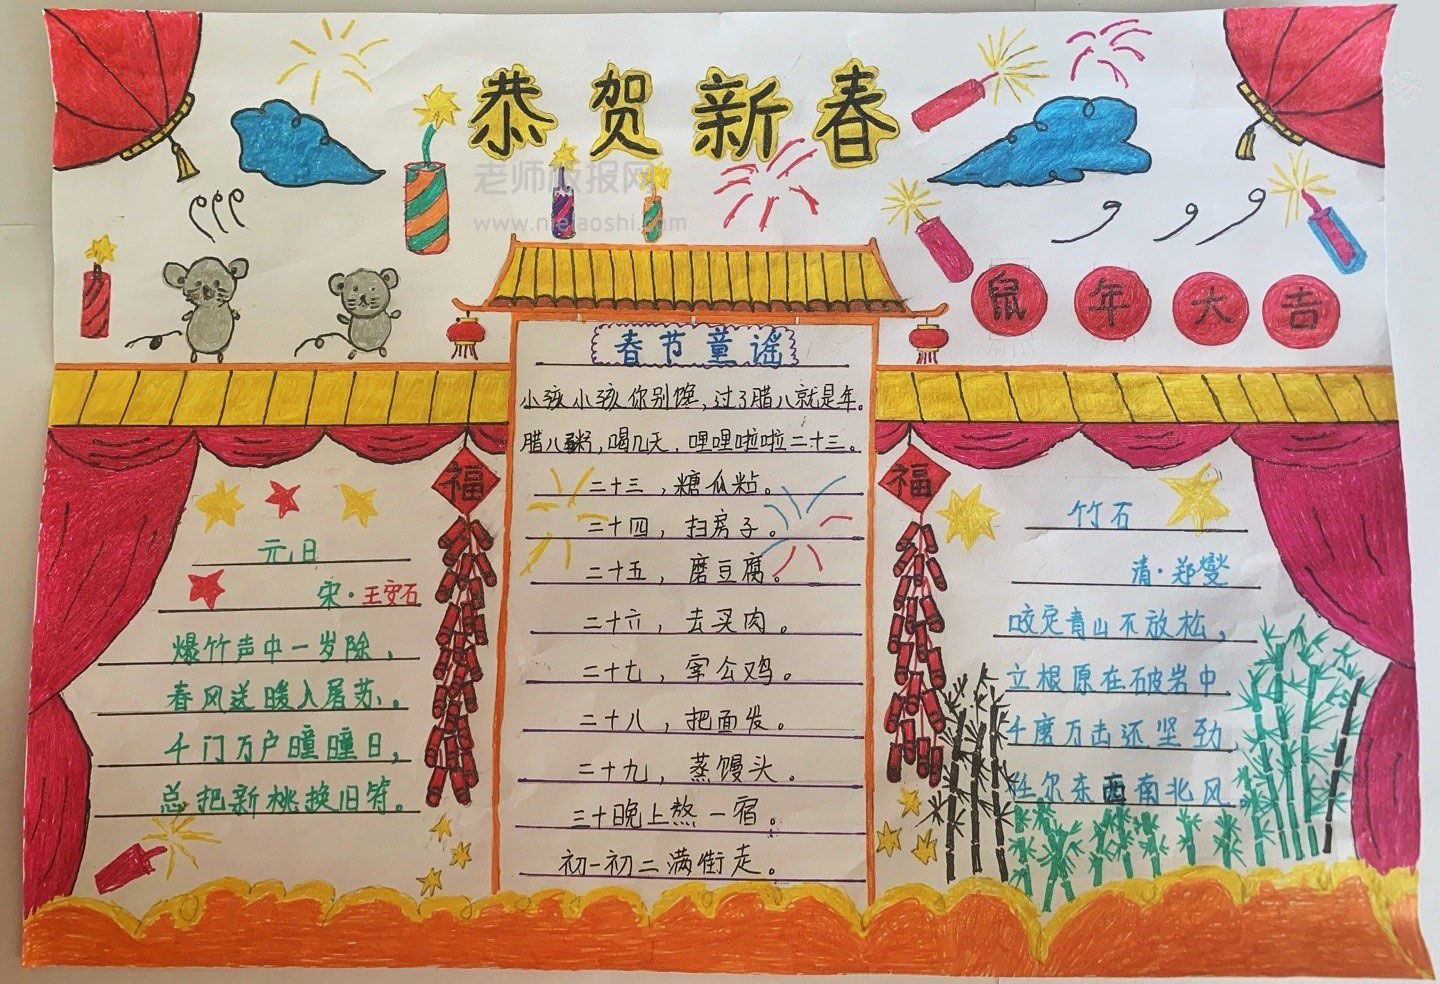 恭贺新春
老师板报网
www.nielaoshi.com
鼠年大吉
福
福
元日
宋·王安石
爆竹声中一岁除，
春风送暖入屠苏。
千门万户曈曈日，
总把新桃换旧符。
春节童谣
小孩小孩你别馋，过了腊八就是年。
腊八粥，喝几天，哩哩啦啦二十三。
二十三，糖瓜粘。
二十四，扫房子。
二十五，磨豆腐。
二十六，去买肉。
二十七，宰公鸡。
二十八，把面发。
二十九，蒸馒头。
三十晚上熬一宿。
初一初二满街走。
竹石
清·郑燮
咬定青山不放松，
立根原在破岩中
千磨万击还坚劲，
任尔东西南北风。